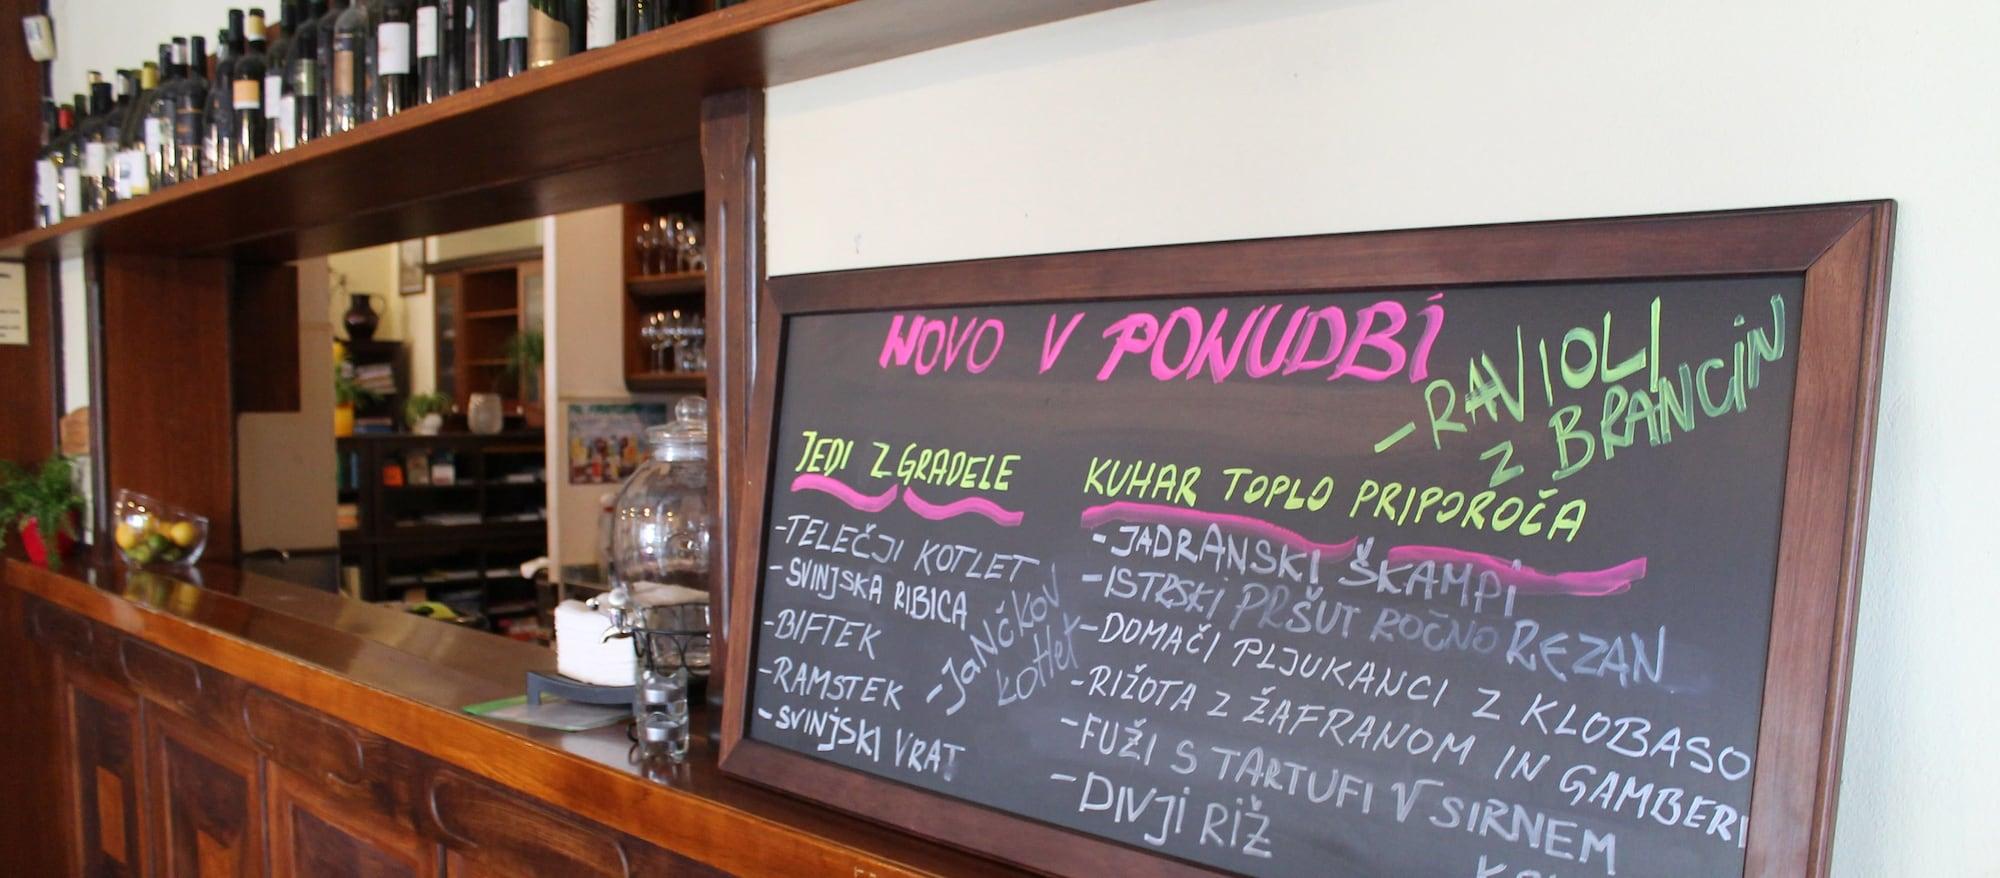 NOVO V PONUDBI
- RAVIOLI
Z BRANCIN
JEDI Z GRADELE
- TELEČJI KOTLET
- SVINJSKA RIBICA
- BIFTEK
- RAMSTEK
- SVINJSKI VRAT
- JANČKOV
KOTLET
KUHAR TOPLO PRIPOROČA
- JADRANSKI ŠKAMPI
- ISTRSKI PRŠUT ROČNO REZAN
- DOMAČI PLJUKANCI Z KLOBASO
- RIŽOTA Z ŽAFRANOM IN GAMBERI
- FUŽI S TARTUFI V SIRNEM
- DIVJI RIŽ